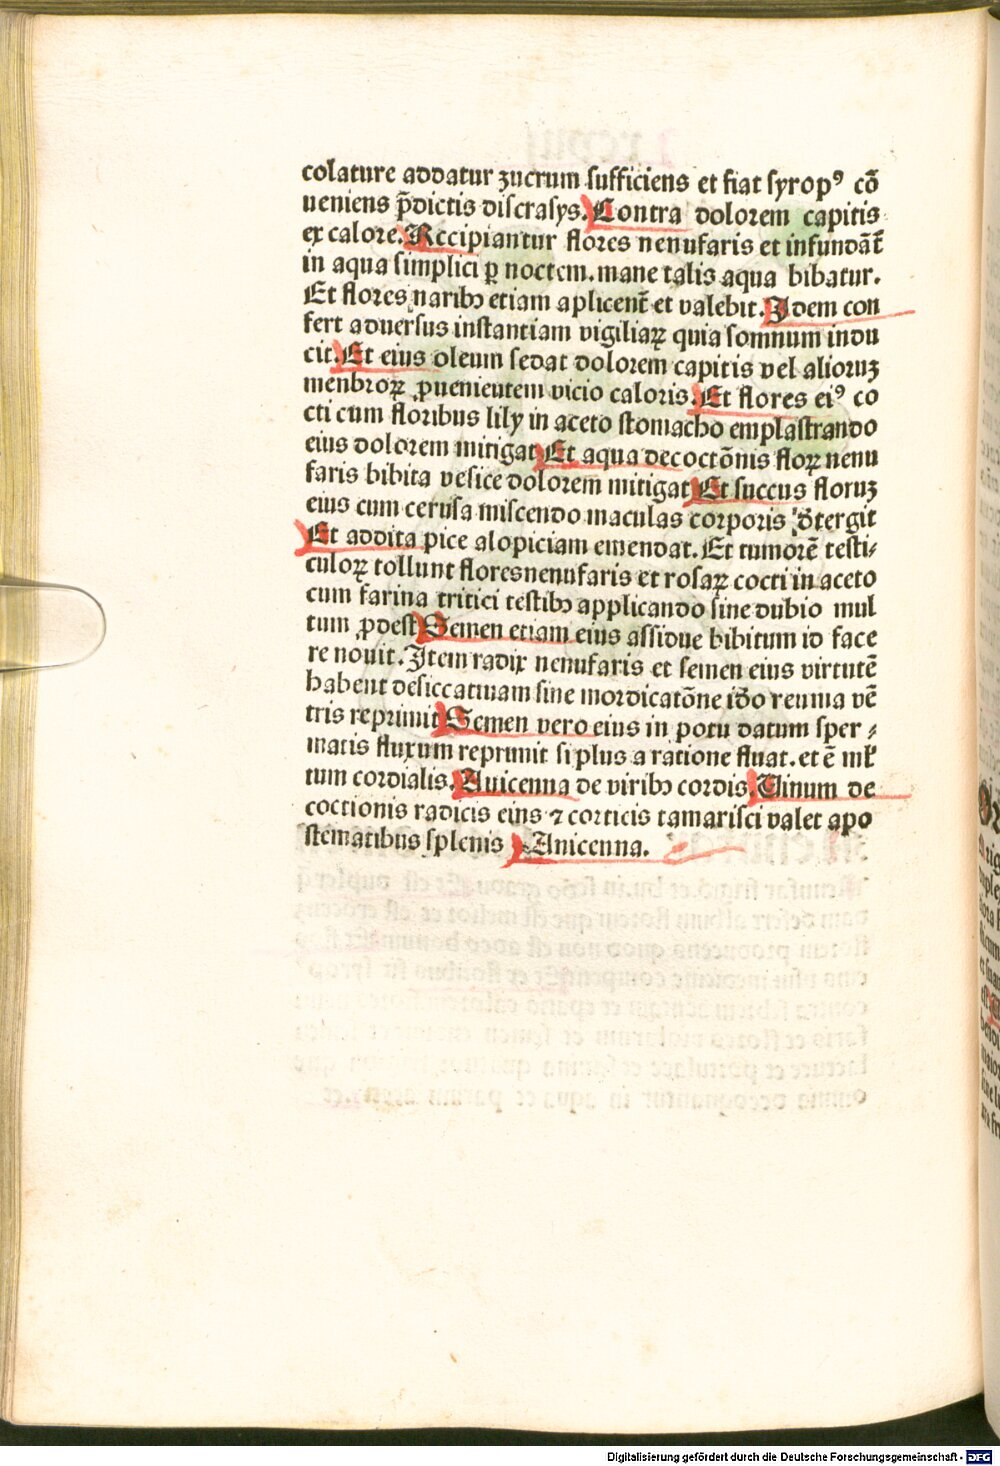 colature addatur zucrum sufficiens et fiat syropꝰ cō
ueniens p̄dictis discrasys. Contra dolorem capitis
ex calore. Accipiantur flores nenufaris et infundāt̄
in aqua simplici ꝑ noctem. mane talis aqua bibatur.
Et flores naribꝫ etiam aplicent̄ et valebit. Idem con
fert aduersus instantiam vigiliaꝝ quia somnum indu
cit. Et eius oleum sedat dolorem capitis vel alioruꝫ
menbroꝝ ꝓuenientem vicio caloris. Et flores eiꝰ co
cti cum floribus lily in aceto stomacho emplastrando
eius dolorem mitigat Et aqua decoctōnis floꝝ nenu
faris bibita vesice dolorem mitigat Et succus floruꝫ
eius cum cerusa miscendo maculas corporis d̄tergit
Et addita pice alopiciam emendat. Et tumorē testi⸗
culoꝝ tollunt flores nenufaris et rosaꝝ cocti in aceto
cum farina tritici testibꝫ applicando sine dubio mul
tum ꝓdest Semen etiam eius assidue bibitum id face
re nouit. Item radix nenufaris et semen eius virtutē
habent desiccatiuam sine mordicatōne id̄o reuma vē
tris reprimit Semen vero eius in potu datum sper⸗
matis fluxum reprimit si plus a ratione fluat. et ē ml̄
tum cordialis. Auicenna de viribꝫ cordis. Vinum de
coctionis radicis eius ⁊ corticis tamarisci valet apo
stematibus splenis Auicenna.
Digitalisierung gefördert durch die Deutsche Forschungsgemeinschaft - DFG